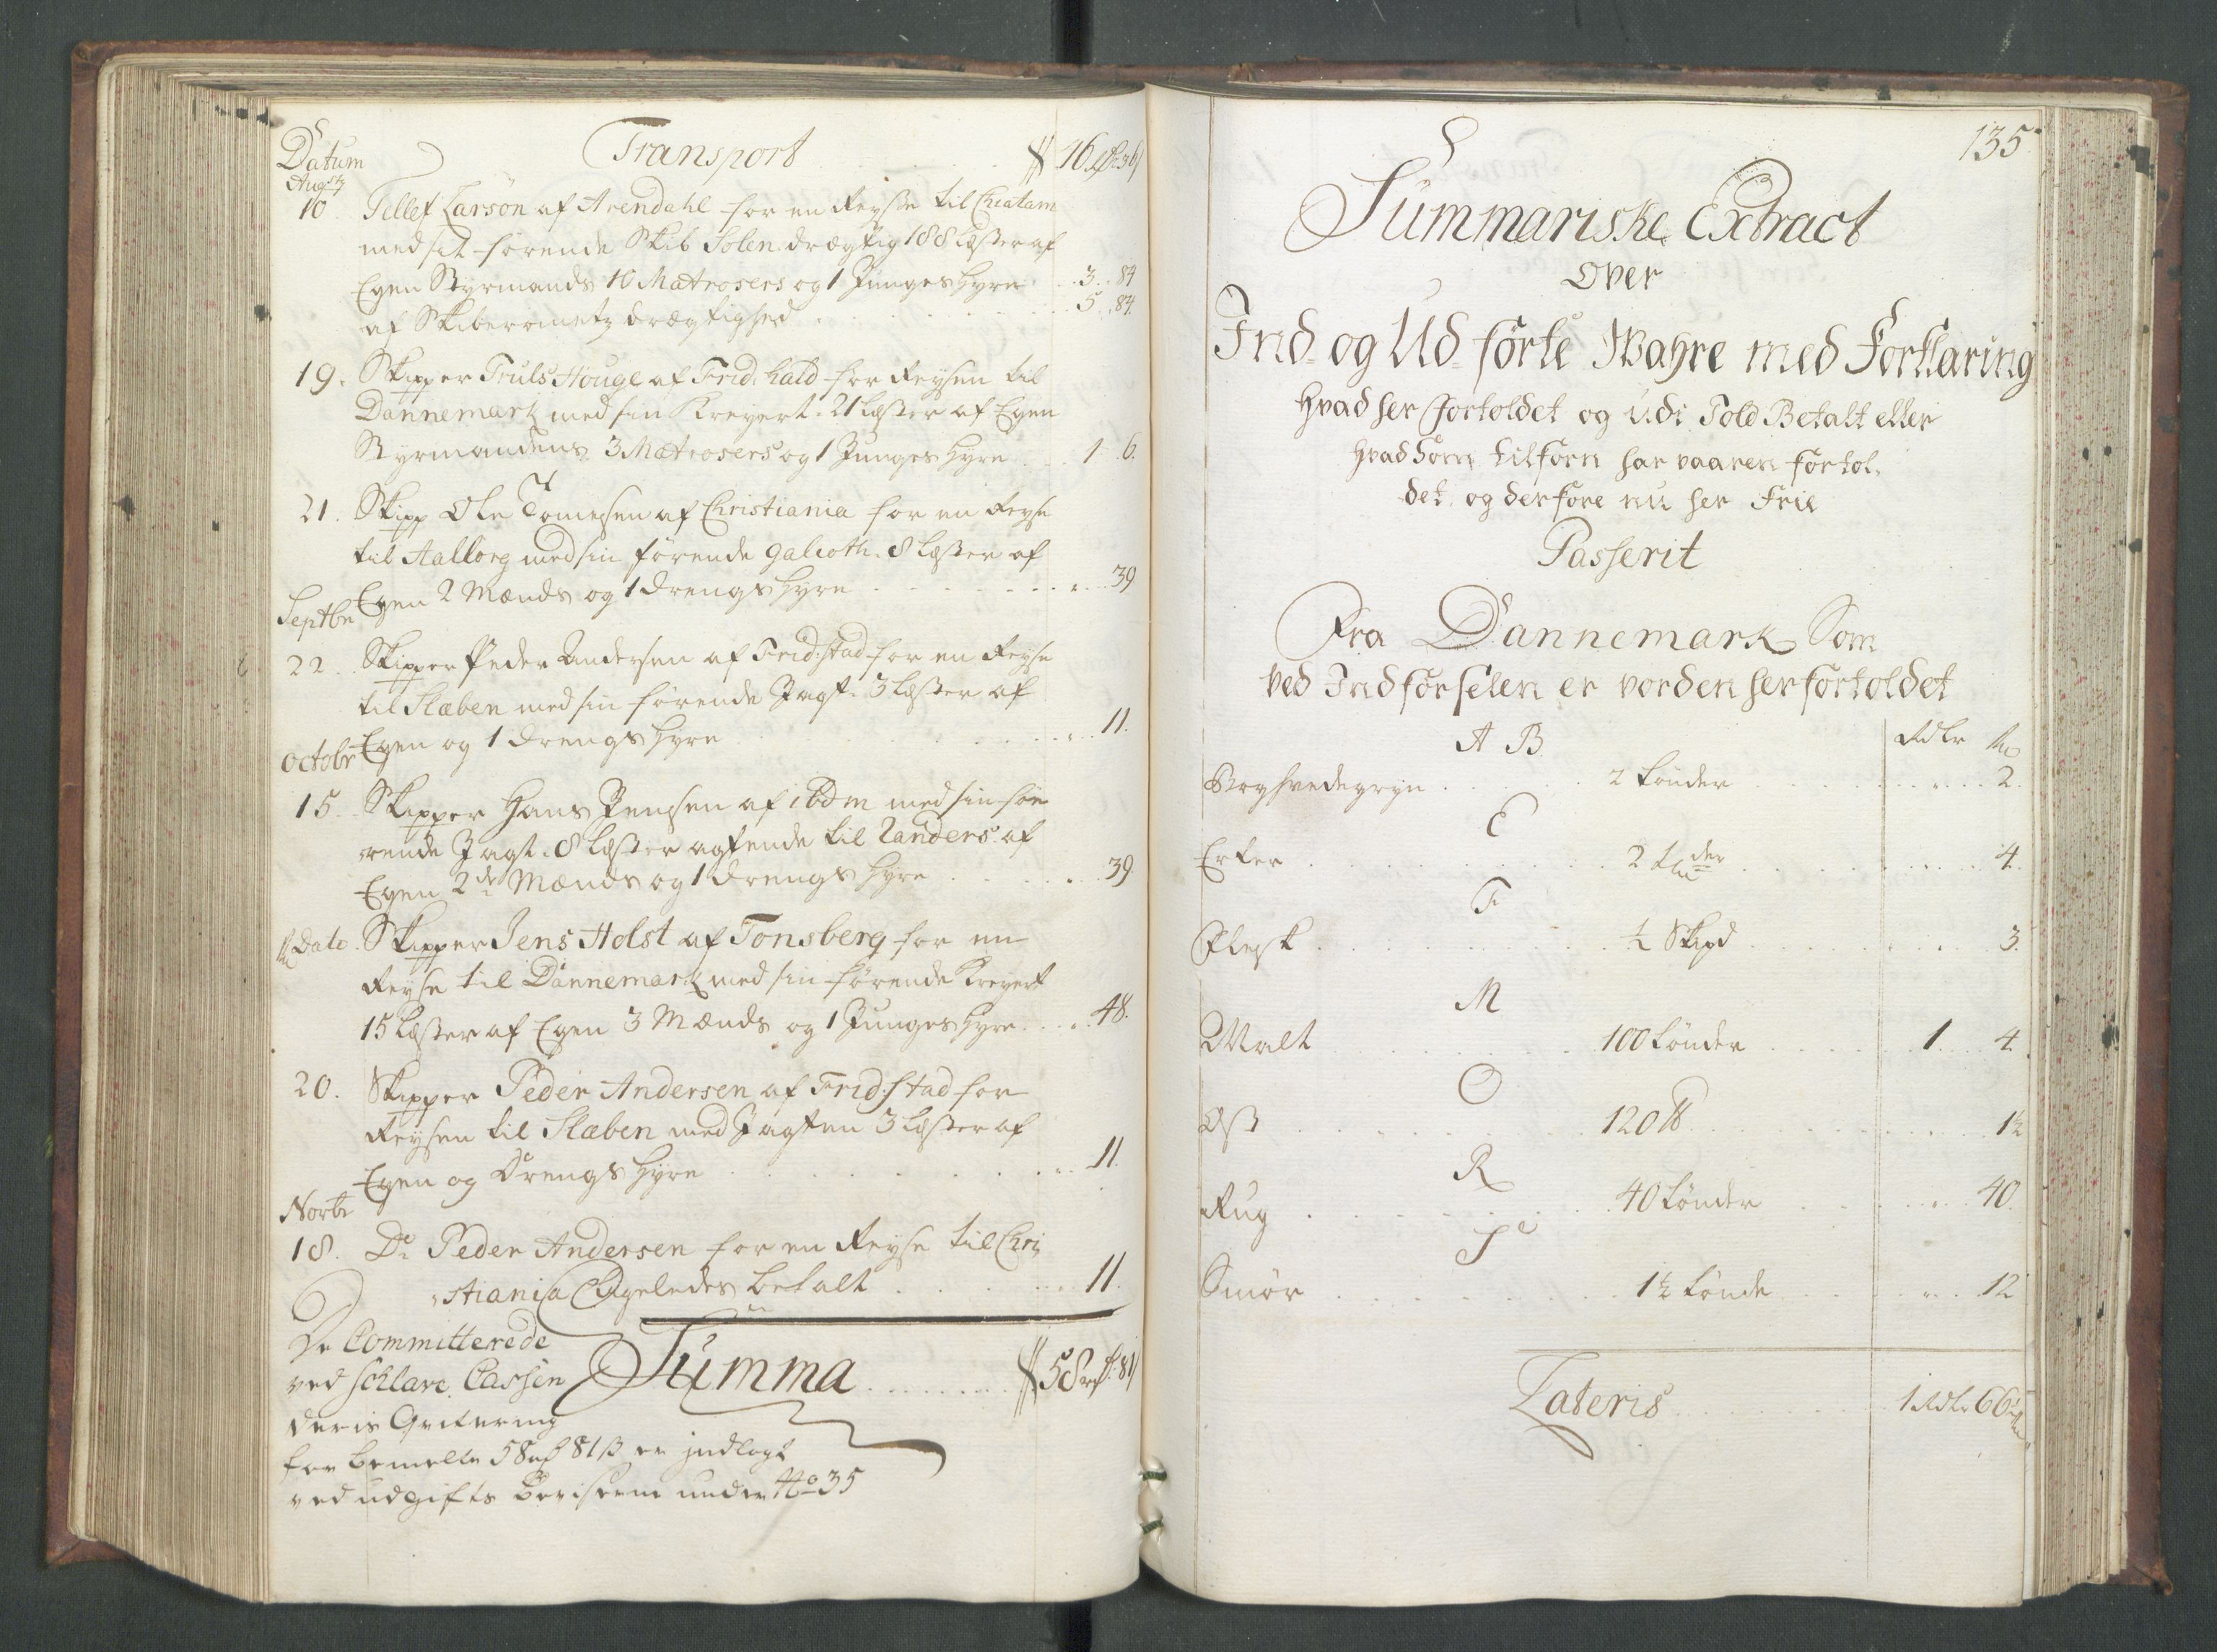 Datum Transport 46 36
Augsty
10. Tellef Larsön af Arendahl for en Reysse til Chiatam
med sit førende Skib Solen drægtig 188 læster af
Egen Styrmands 10 Matrosers og 1 Junges hyre . . 3 . 84
af Skiberometz drægtighed . . 5 . 84.
19. Skipper Truls Houge af Frid: hald for Reysen til
Dannemark med sin Kreyert. 21 læster af Egen
Styrmandens 3 Matrosers og 1 Junges hyre . . 1 . 6.
21. Skipp Ole Tomesen af Christiania for en Reyse
til Aalborg med sin førende galioth. 8 læster af
Egen 2 Mænds og 1 drengs hyre . . 39
Septbr
22. Skipper Peder Andersen af Frid:stad for en Reyse
til Slæben med sin førende Jagt. 3 læster af
Egen og 1 drengs hyre . . 11.
Octobr
15. Skipper Hans Jensen af ibdm med sin føe
rende Jagt. 8 læster agtende til Randers af
Egen 2de Mænds og 1 drengs hyre . . 39.
Dato. Skipper Jens Holst af Tonsberg for en
Reyse til Dannemark med sin førende Kreyert
15 læster af Egen 3 Mænds og 1 Junges hyre . . 48.
20. Skipper Peder Andersen af Frid:stad for
Reysen til Slæben med Jagten 3 læster af
Egen og Drengs hyre . . 11.
Novbr
18. Do Peder Andersen for en Reyse til Chri
stiania ligeledes betalt . . 11.
De Committerede
ved Schlave Cassen Summa . . 58 81
deris Qvitering
for bemelte 58 rd 81 ß er indlagt
ved udgifts beviserne under No 35
135
Summariske Extract
Over
Ind- og Ud-førte Wahre med Forklaring
Hvad her fortoldet og udi Told Betalt eller
hvad Som tilforn har vaaren fortol.
det og derfore nu her Frie
Passerit
Fra Dannemark Som
ved Indførselen er vorden her fortoldet
A B Rdlr
Boghvedegryn . . 2 tönder . . 2.
E
Erter . . 2 tder . . 4.
F
Flesk . . ½ Skpd . . 3.
M
Malt . . 100 tönder . . 1 . 4.
O
Ost . . 120 ℔ . . 1½
R
Rug . . 40 tönder . . 40.
S
Smör . . 1½ tönde . . 12
Lateris . . 1 Rdlr 66½